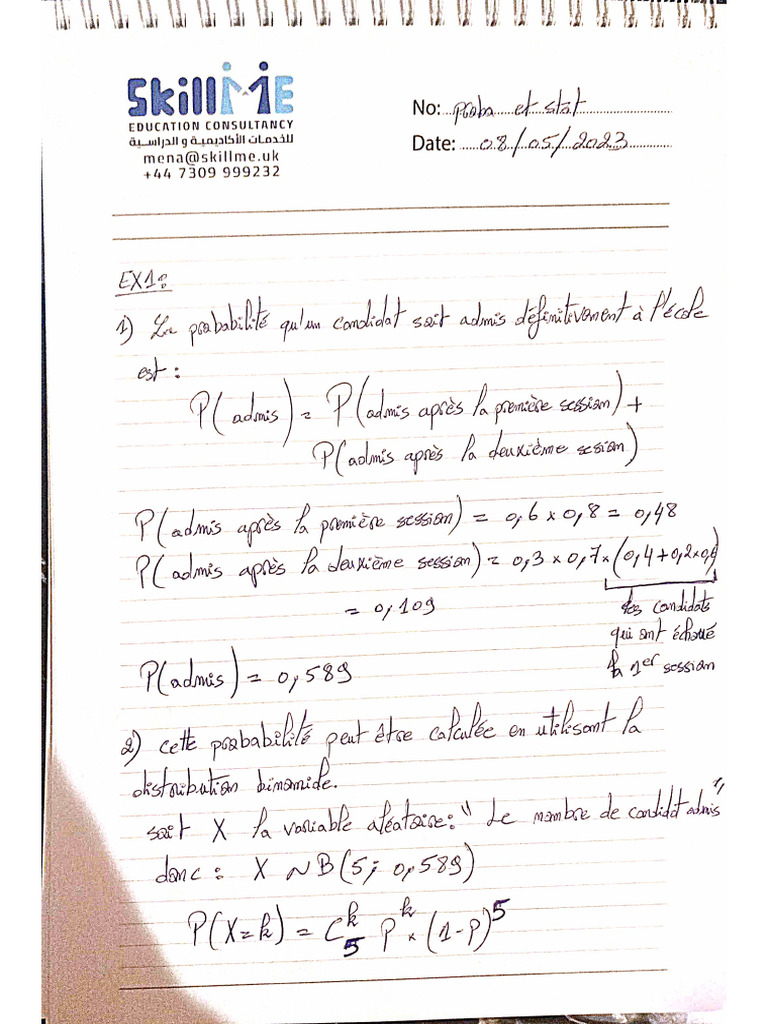 SkillME
EDUCATION CONSULTANCY
للخدمات الأكاديمية و الدراسية
mena@skillme.uk
+44 7309 999232
No: proba et stat
Date: 08/05/2023
EX1:
1) La probabilité qu'un candidat soit admis définitivement à l'école
est :
P(admis) = P(admis après la première session) +
P(admis après la deuxième session)
P(admis après la première session) = 0,6 x 0,8 = 0,48
P(admis après la deuxième session) = 0,3 x 0,7 x (0,4+0,2x0,6)
= 0,109
les candidats
qui ont échoué
la 1er session
P(admis) = 0,589
2) cette probabilité peut être calculée en utilisant la
distribution binomiale.
soit X la variable aléatoire: "Le nombre de candidat admis"
donc : X ~ B(5; 0,589)
P(X=k) = C₅ᵏ Pᵏ x (1-P)⁵